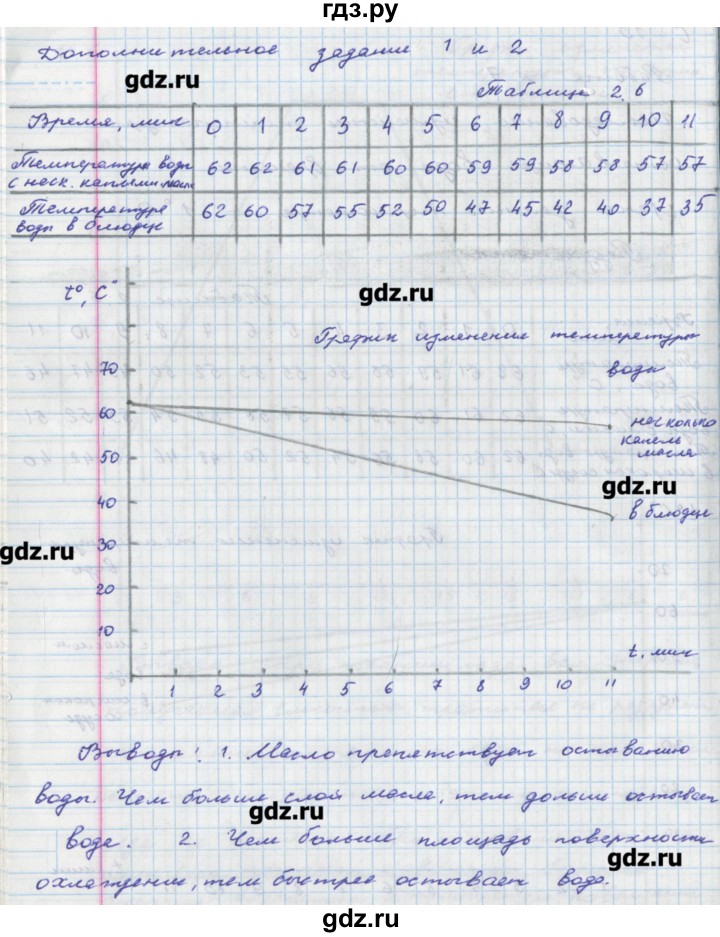 гдз.ру
Дополнительное задание 1 и 2
gdz.ru
Таблица 2.6
Время, мин 0 1 2 3 4 5 6 7 8 9 10 11
Температура воды с неск. каплями масла 62 62 61 61 60 60 59 59 58 58 57 57
Температура воды в блюдце 62 60 57 55 52 50 47 45 42 40 37 35
t°, C°
gdz.ru
График изменения температуры
воды
70
60
50
40
30
20
10
несколько
капель
масла
gdz.ru
в блюдце
gdz.ru
t, мин
1 2 3 4 5 6 7 8 9 10 11
Выводы: 1. Масло препятствует остыванию
воды. Чем больше слой масла, тем дольше остывает
gdz.ru
вода. 2. Чем больше площадь поверхности
gdz.ru
охлаждения, тем быстрее остывает вода.
gdz.ru